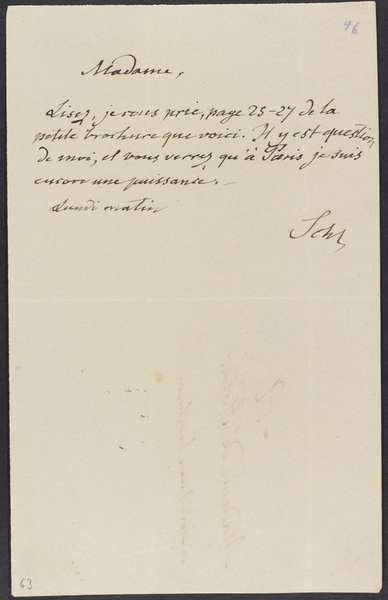 46
Madame,
Lisez, je vous prie, page 25-27 de la
petite brochure que voici. Il y est question
de moi, et vous verrez qu'à Paris je suis
encore une puissance. —
Lundi matin
Schl
63